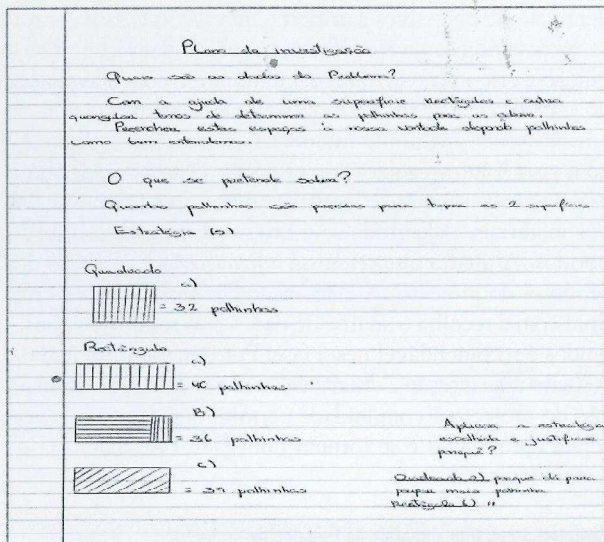 Plano da investigação
Quais são os dados do Problema?
Com a ajuda de uma superfície rectângulas e outra
quangular temos de determinar as palhinhas para as cobrir.
Preencher estes espaços à nossa vontade depondo palhinhas
como bem entendermos.
O que se pretende saber?
Quantas palhinhas são precisas para tapar as 2 superfícies
Estratégia (s)
Quadrado
a)
= 32 palhinhas
Rectângulo
a)
= 40 palhinhas
B)
= 36 palhinhas
c)
= 39 palhinhas
Aplicar a estratégia
escolhida e justificar
porquê?
Quadrado a) porque dá para
poupar mais palhinha
Rectângulo b) "